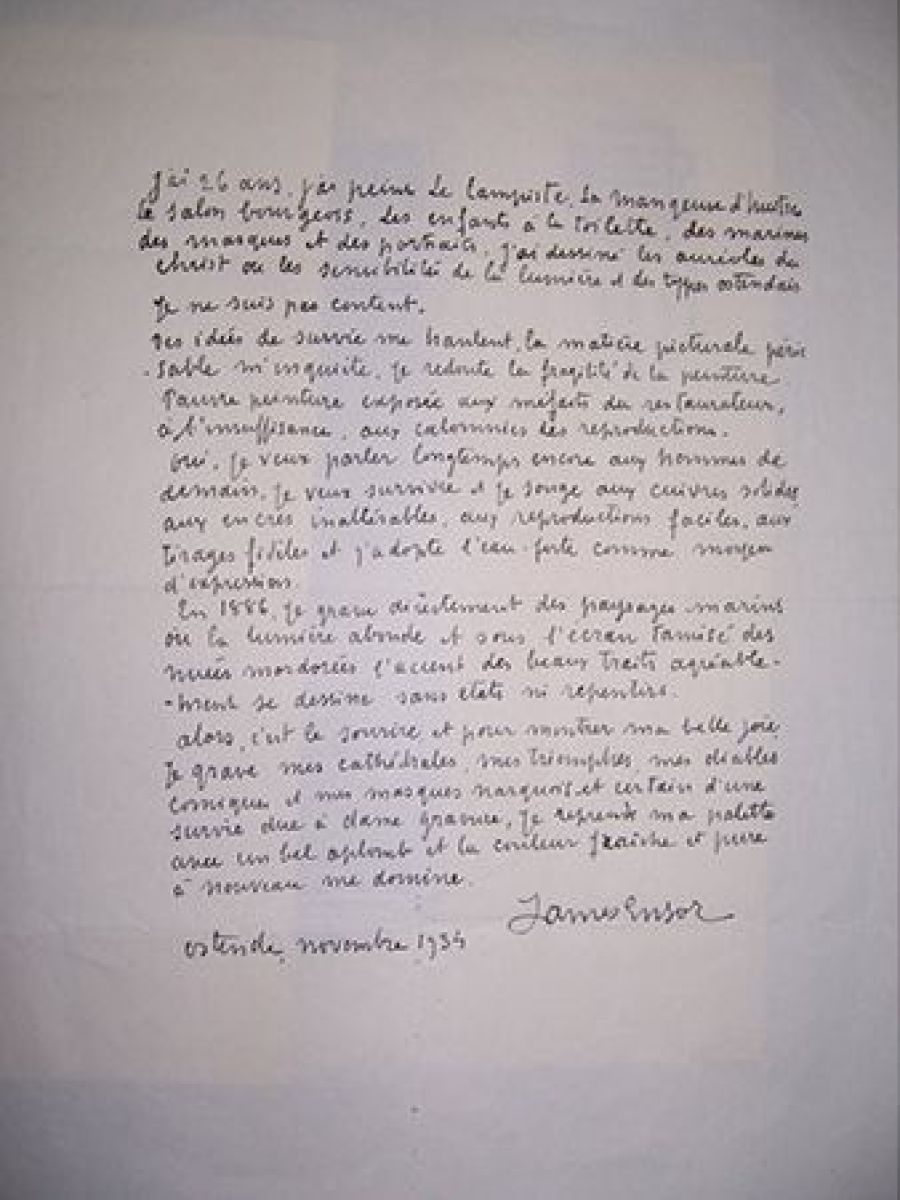 J'ai 26 ans, j'ai peint Le Lampiste, La mangeuse d'huitres
le salon bourgeois, des enfants à la toilette, des marines
des masques et des portraits, j'ai dessiné les auréoles du
Christ ou les sensibilités de la lumière et des types ostendais
Je ne suis pas content.
Des idées de survie me hantent, la matière picturale péris
-sable m'inquiète, je redoute la fragilité de la peinture
Pauvre peinture exposée aux méfaits du restaurateur,
à l'insuffisance, aux calomnies des reproductions.
Oui, je veux parler longtemps encore aux hommes de
demain, je veux survivre et je songe aux cuivres solides
aux encres inaltérables, aux reproductions faciles, aux
tirages fidèles et j'adopte l'eau-forte comme moyen
d'expression.
En 1886, je grave directement des paysages marins
où la lumière abonde et sous l'écran tamisé des
nuées mordorées l'accent des beaux traits agréable-
-ment se dessine sans états ni repentirs.
alors, c'est le sourire et pour montrer ma belle joie
Je grave mes cathédrales, mes triomphes, mes diables
comiques et mes masques narquois, et certain d'une
survie due à dame gravure, je reprends ma palette
avec un bel aplomb et la couleur fraîche et pure
à nouveau me domine.
James Ensor
Ostende, novembre 1934